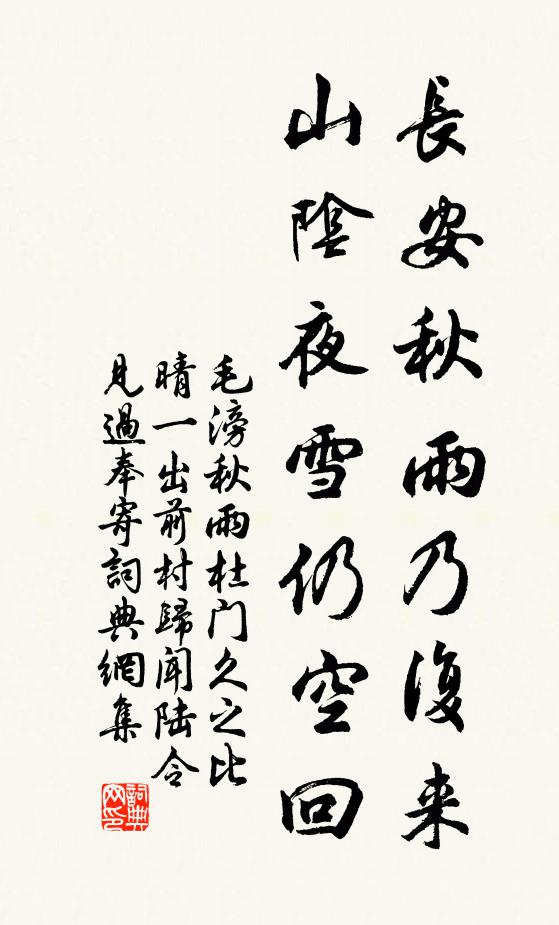 長安秋雨乃復来
山陰夜雪仍空回
毛滂秋雨杜门久之比
晴一出前村歸闻陆令
見過奉寄詞典網集
詞典网印